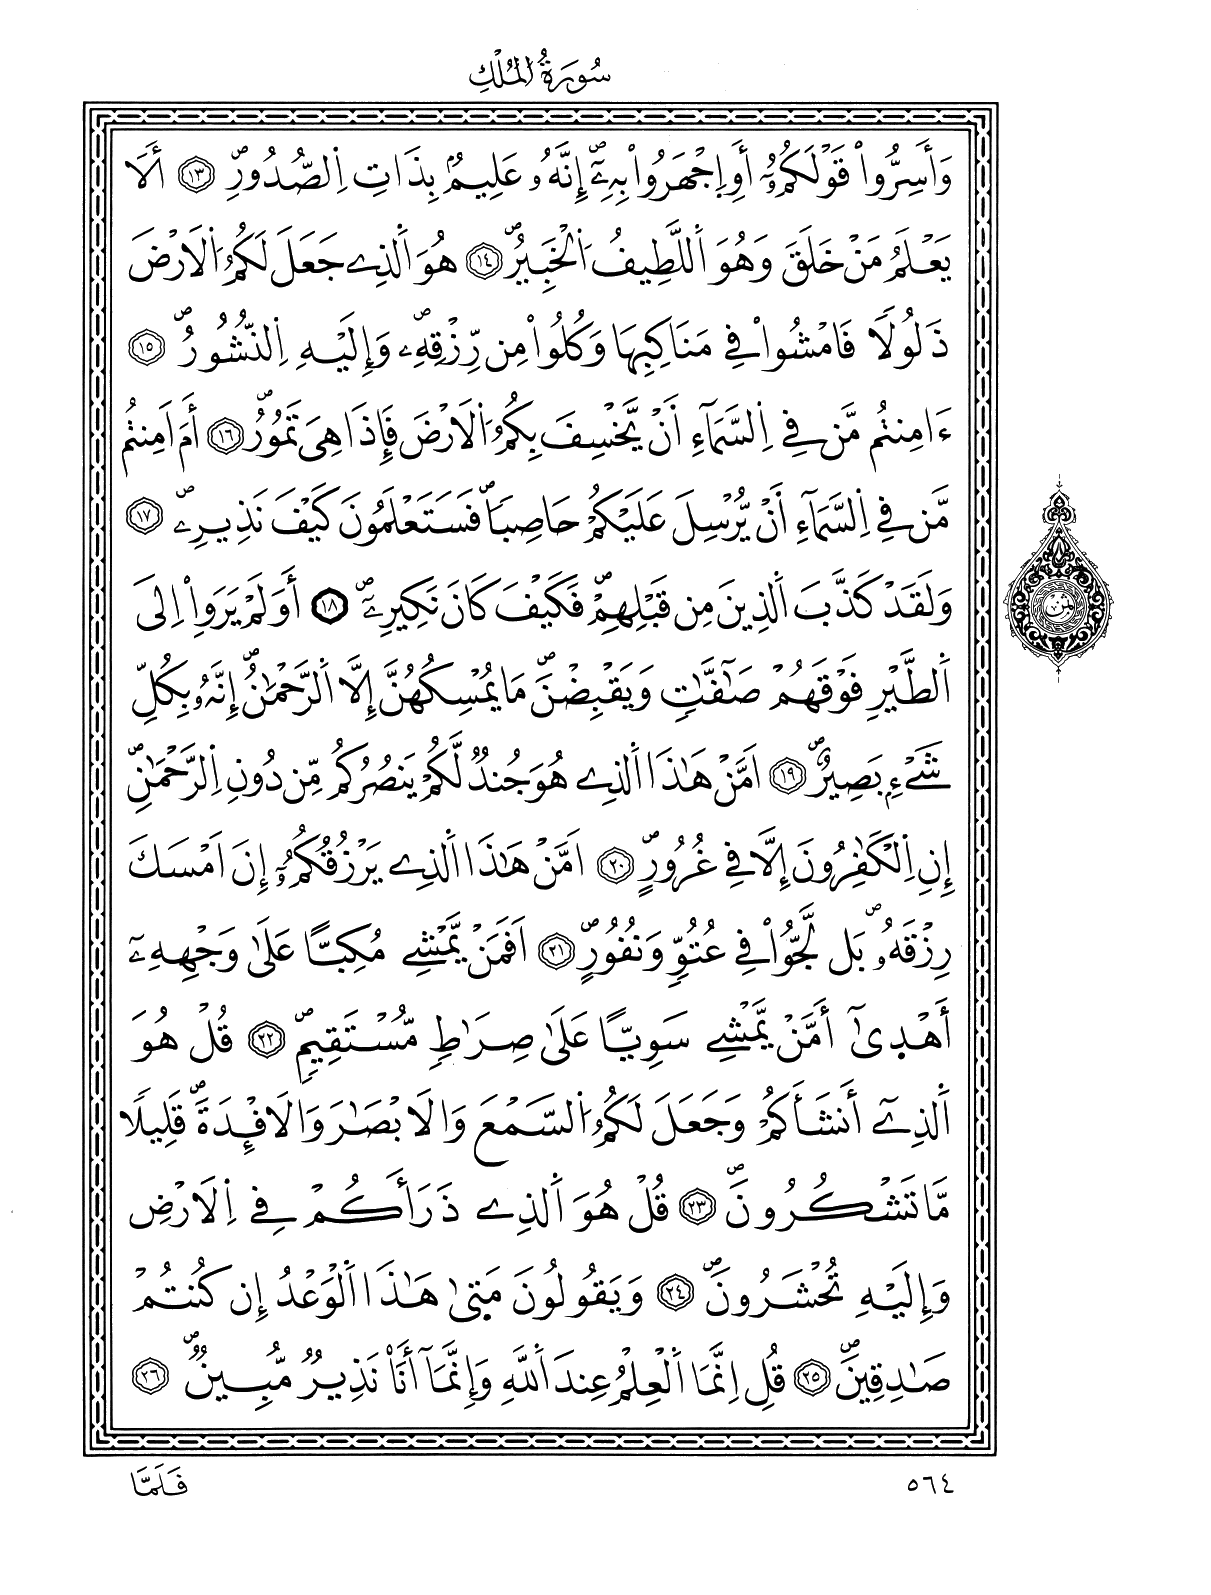 سُورَةُ الْمُلْكِ
وَأَسِرُّوا۟ قَوْلَكُمُۥٓ أَوِ اِ۪جْهَرُوا۟ بِهِۦٓۖ إِنَّهُۥ عَلِيمُۢ بِذَاتِ اِ۬لصُّدُورِۖ ١٣ أَلَا
يَعْلَمُ مَنْ خَلَقَ وَهُوَ اَ۬للَّطِيفُ اُ۬لْخَبِيرُۖ ١٤ هُوَ اَ۬لذِے جَعَلَ لَكُمُ اُ۬لَارْضَ
ذَلُولاٗ فَامْشُوا۟ فِے مَنَاكِبِهَا وَكُلُوا۟ مِن رِّزْقِهِۦۖ وَإِلَيْهِ اِ۬لنُّشُورُۖ ١٥
ءَا۬مِنتُم مَّن فِے اِ۬لسَّمَآءِ انْ يَّخْسِفَ بِكُمُ اُ۬لَارْضَ فَإِذَا هِيَ تَمُورُۖ ١٦ أَمَ اَمِنتُم
مَّن فِے اِ۬لسَّمَآءِ انْ يُّرْسِلَ عَلَيْكُمْ حَاصِباٗۖ فَسَتَعْلَمُونَ كَيْفَ نَذِيرِۦۖ ١٧
وَلَقَدْ كَذَّبَ اَ۬لذِينَ مِن قَبْلِهِمْۖ فَكَيْفَ كَانَ نَكِيرِۦٓۖ ١٨ أَوَلَمْ يَرَوِاْ اِلَى
اَ۬لطَّيْرِ فَوْقَهُمْ صَٰٓفَّٰتٖ وَيَقْبِضْنَۖ مَا يُمْسِكُهُنَّ إِلَّا اَ۬لرَّحْمَٰنُۖ إِنَّهُۥ بِكُلِّ
شَےْءِۢ بَصِيرٌۖ ١٩ اَمَّنْ هَٰذَا اَ۬لذِے هُوَ جُندٞ لَّكُمْ يَنصُرُكُم مِّن دُونِ اِ۬لرَّحْمَٰنِۖ
إِنِ اِ۬لْكَٰفِرُونَ إِلَّا فِے غُرُورٍۖ ٢٠ اَمَّنْ هَٰذَا اَ۬لذِے يَرْزُقُكُمُۥٓ إِنَ اَمْسَكَ
رِزْقَهُۥۖ بَل لَّجُّوا۟ فِے عُتُوّٖ وَنُفُورٍۖ ٢١ اَفَمَنْ يَّمْشِے مُكِبّاً عَلَىٰ وَجْهِهِۦٓ
أَهْد۪ىٰٓ أَمَّنْ يَّمْشِے سَوِيّاً عَلَىٰ صِرَٰطٖ مُّسْتَقِيمٖۖ ٢٢ قُلْ هُوَ
اَ۬لذِےٓ أَنشَأَكُمْ وَجَعَلَ لَكُمُ اُ۬لسَّمْعَ وَالَابْصَٰرَ وَالَافْـِٕدَةَۖ قَلِيلاٗ
مَّا تَشْكُرُونَۖ ٢٣ قُلْ هُوَ اَ۬لذِے ذَرَأَكُمْ فِے اِ۬لَارْضِ
وَإِلَيْهِ تُحْشَرُونَۖ ٢٤ وَيَقُولُونَ مَت۪ىٰ هَٰذَا اَ۬لْوَعْدُ إِن كُنتُمْ
صَٰدِقِينَۖ ٢٥ قُلِ اِنَّمَا اَ۬لْعِلْمُ عِندَ اَ۬للَّهِ وَإِنَّمَآ أَنَا۟ نَذِيرٞ مُّبِينٞۖ ٢٦
ثمن
٥٦٤
فَلَمَّا